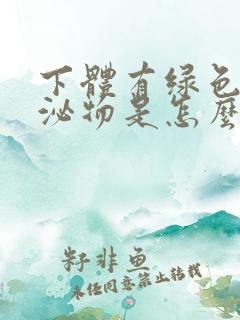 下體有綠色
泌物是怎麼
籽非鱼
未经同意禁止转载